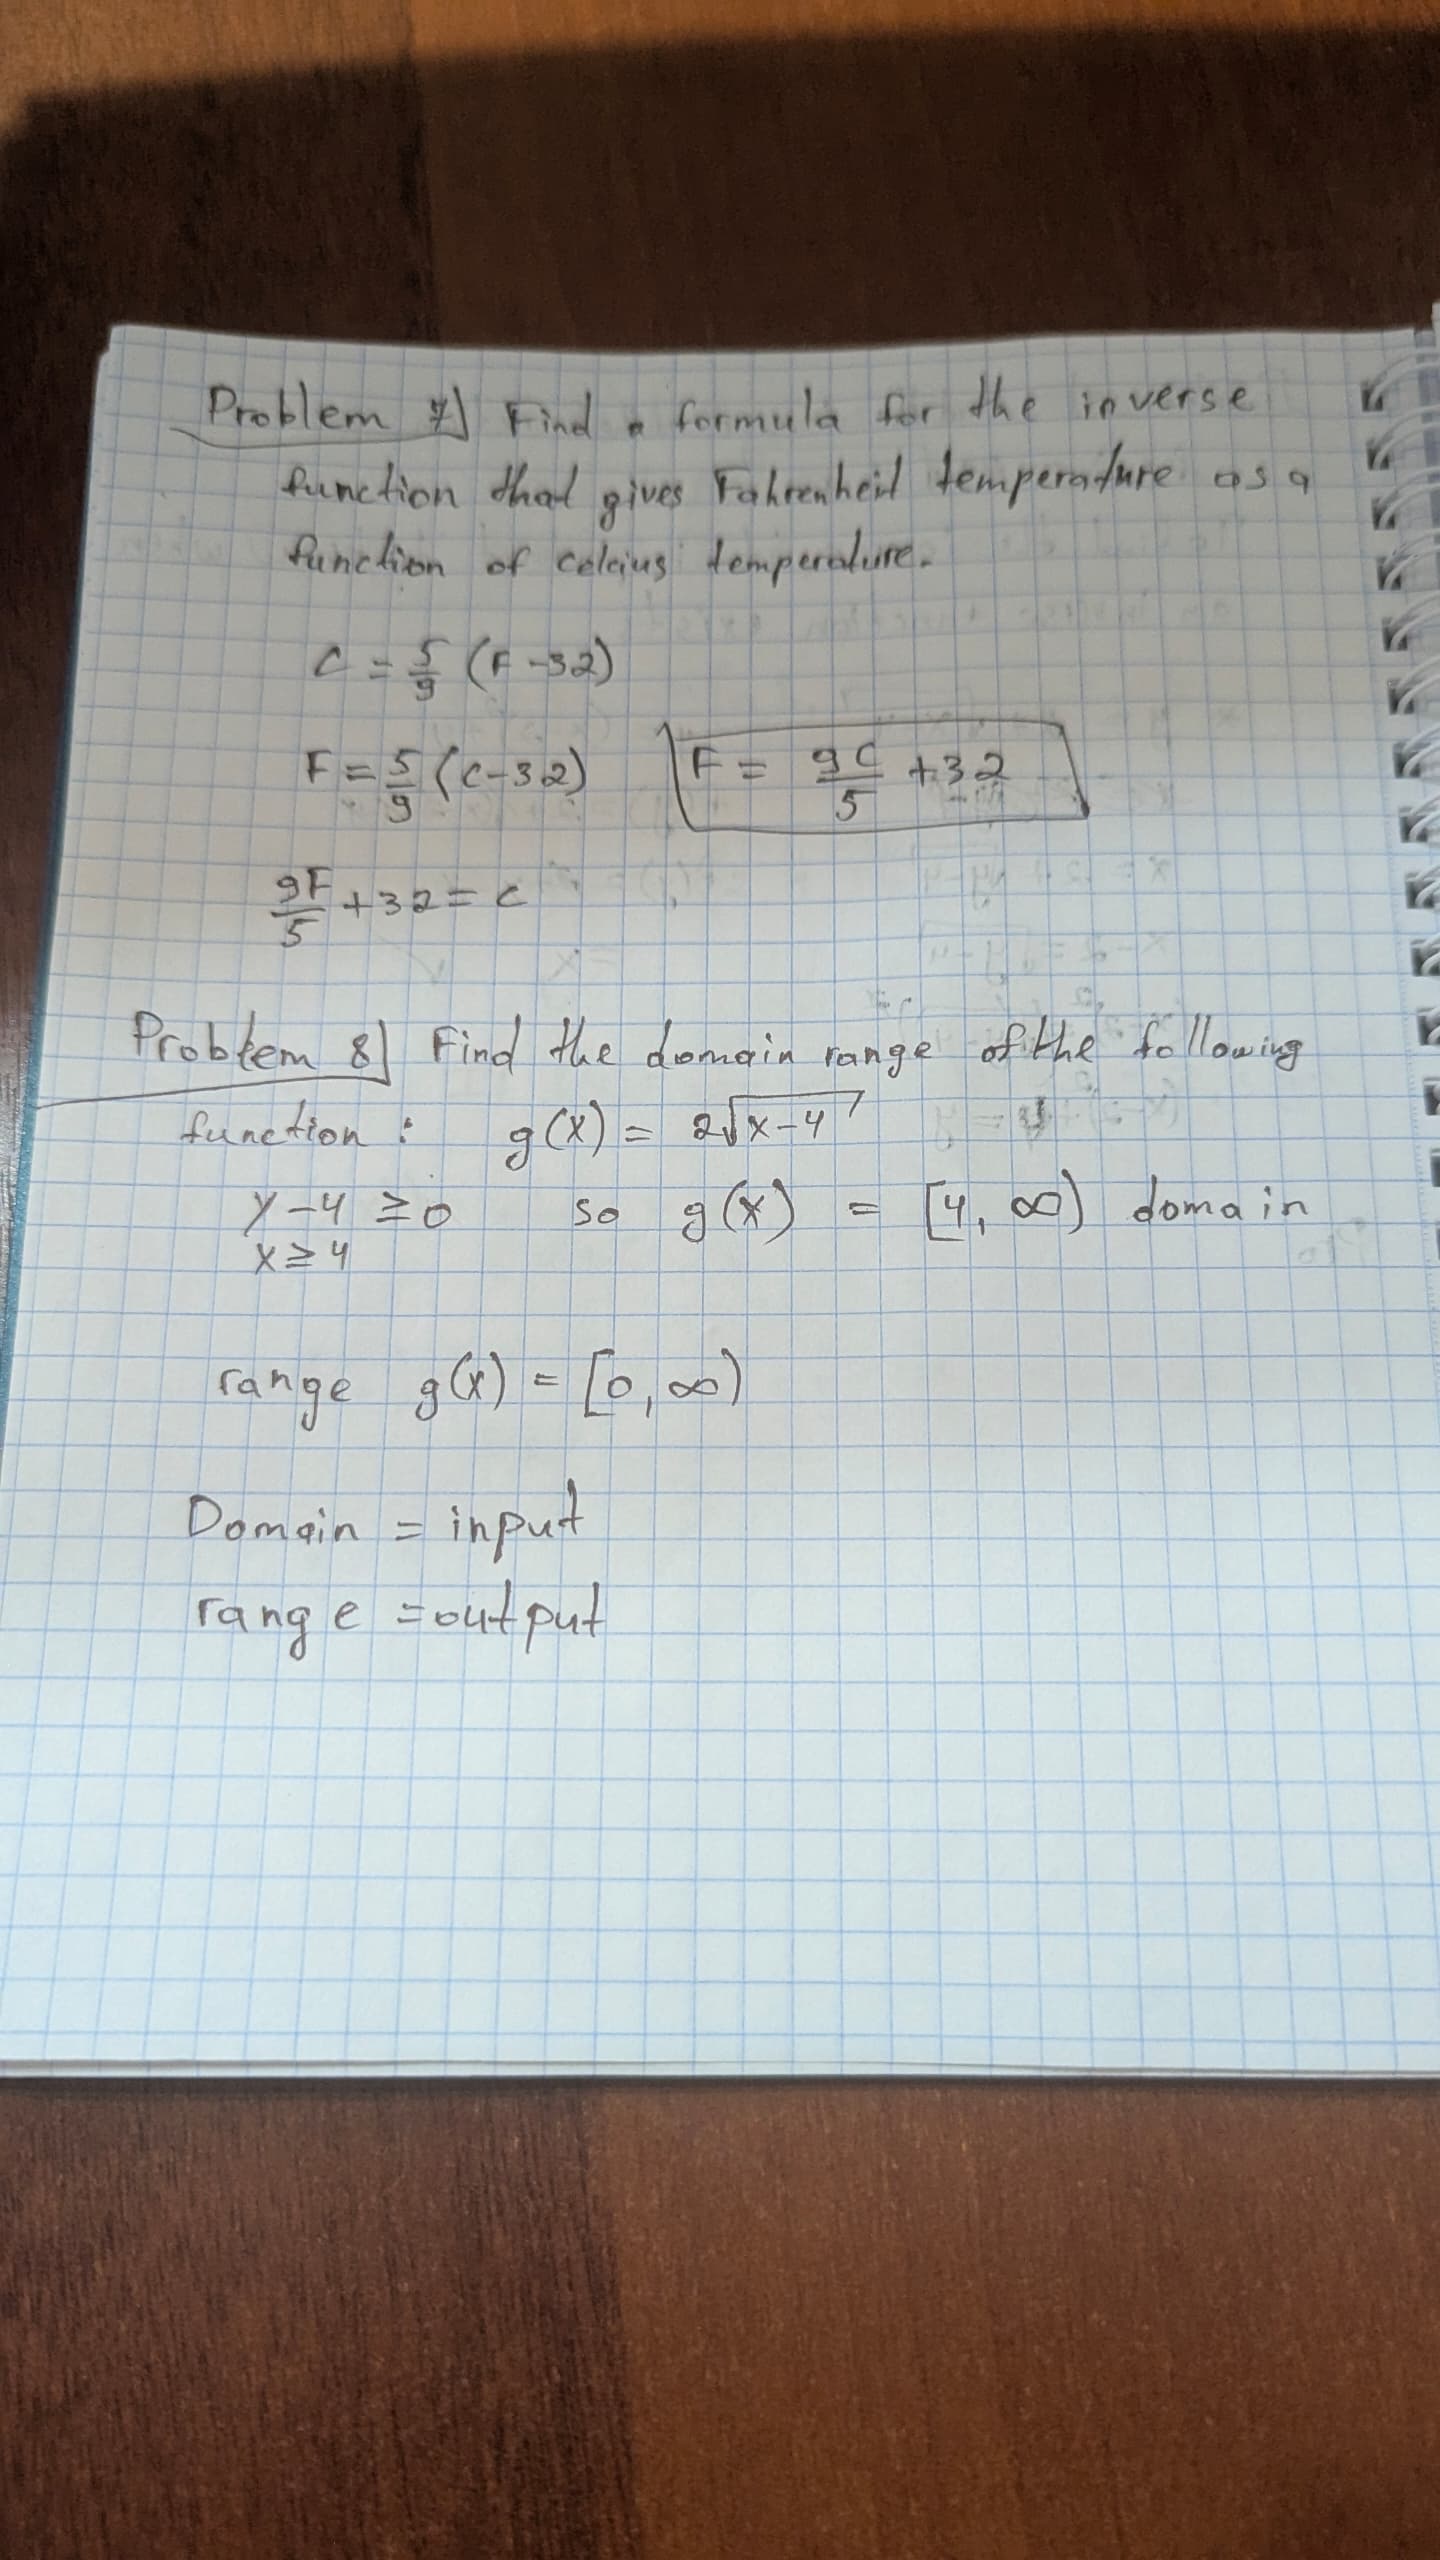 Problem 7) Find a formula for the inverse
function that gives Fahrenheit temperature as a
function of celcius temperature.
C = 5/9 (F - 32)
F = 5/9 (C - 32)    F = 9C/5 + 32
9F/5 + 32 = C
Problem 8) Find the domain range of the following
function : g(x) = 2√(x-4)
x - 4 ≥ 0    so g(x) = [4, ∞) domain
x ≥ 4
range g(x) = [0, ∞)
Domain = input
range = output